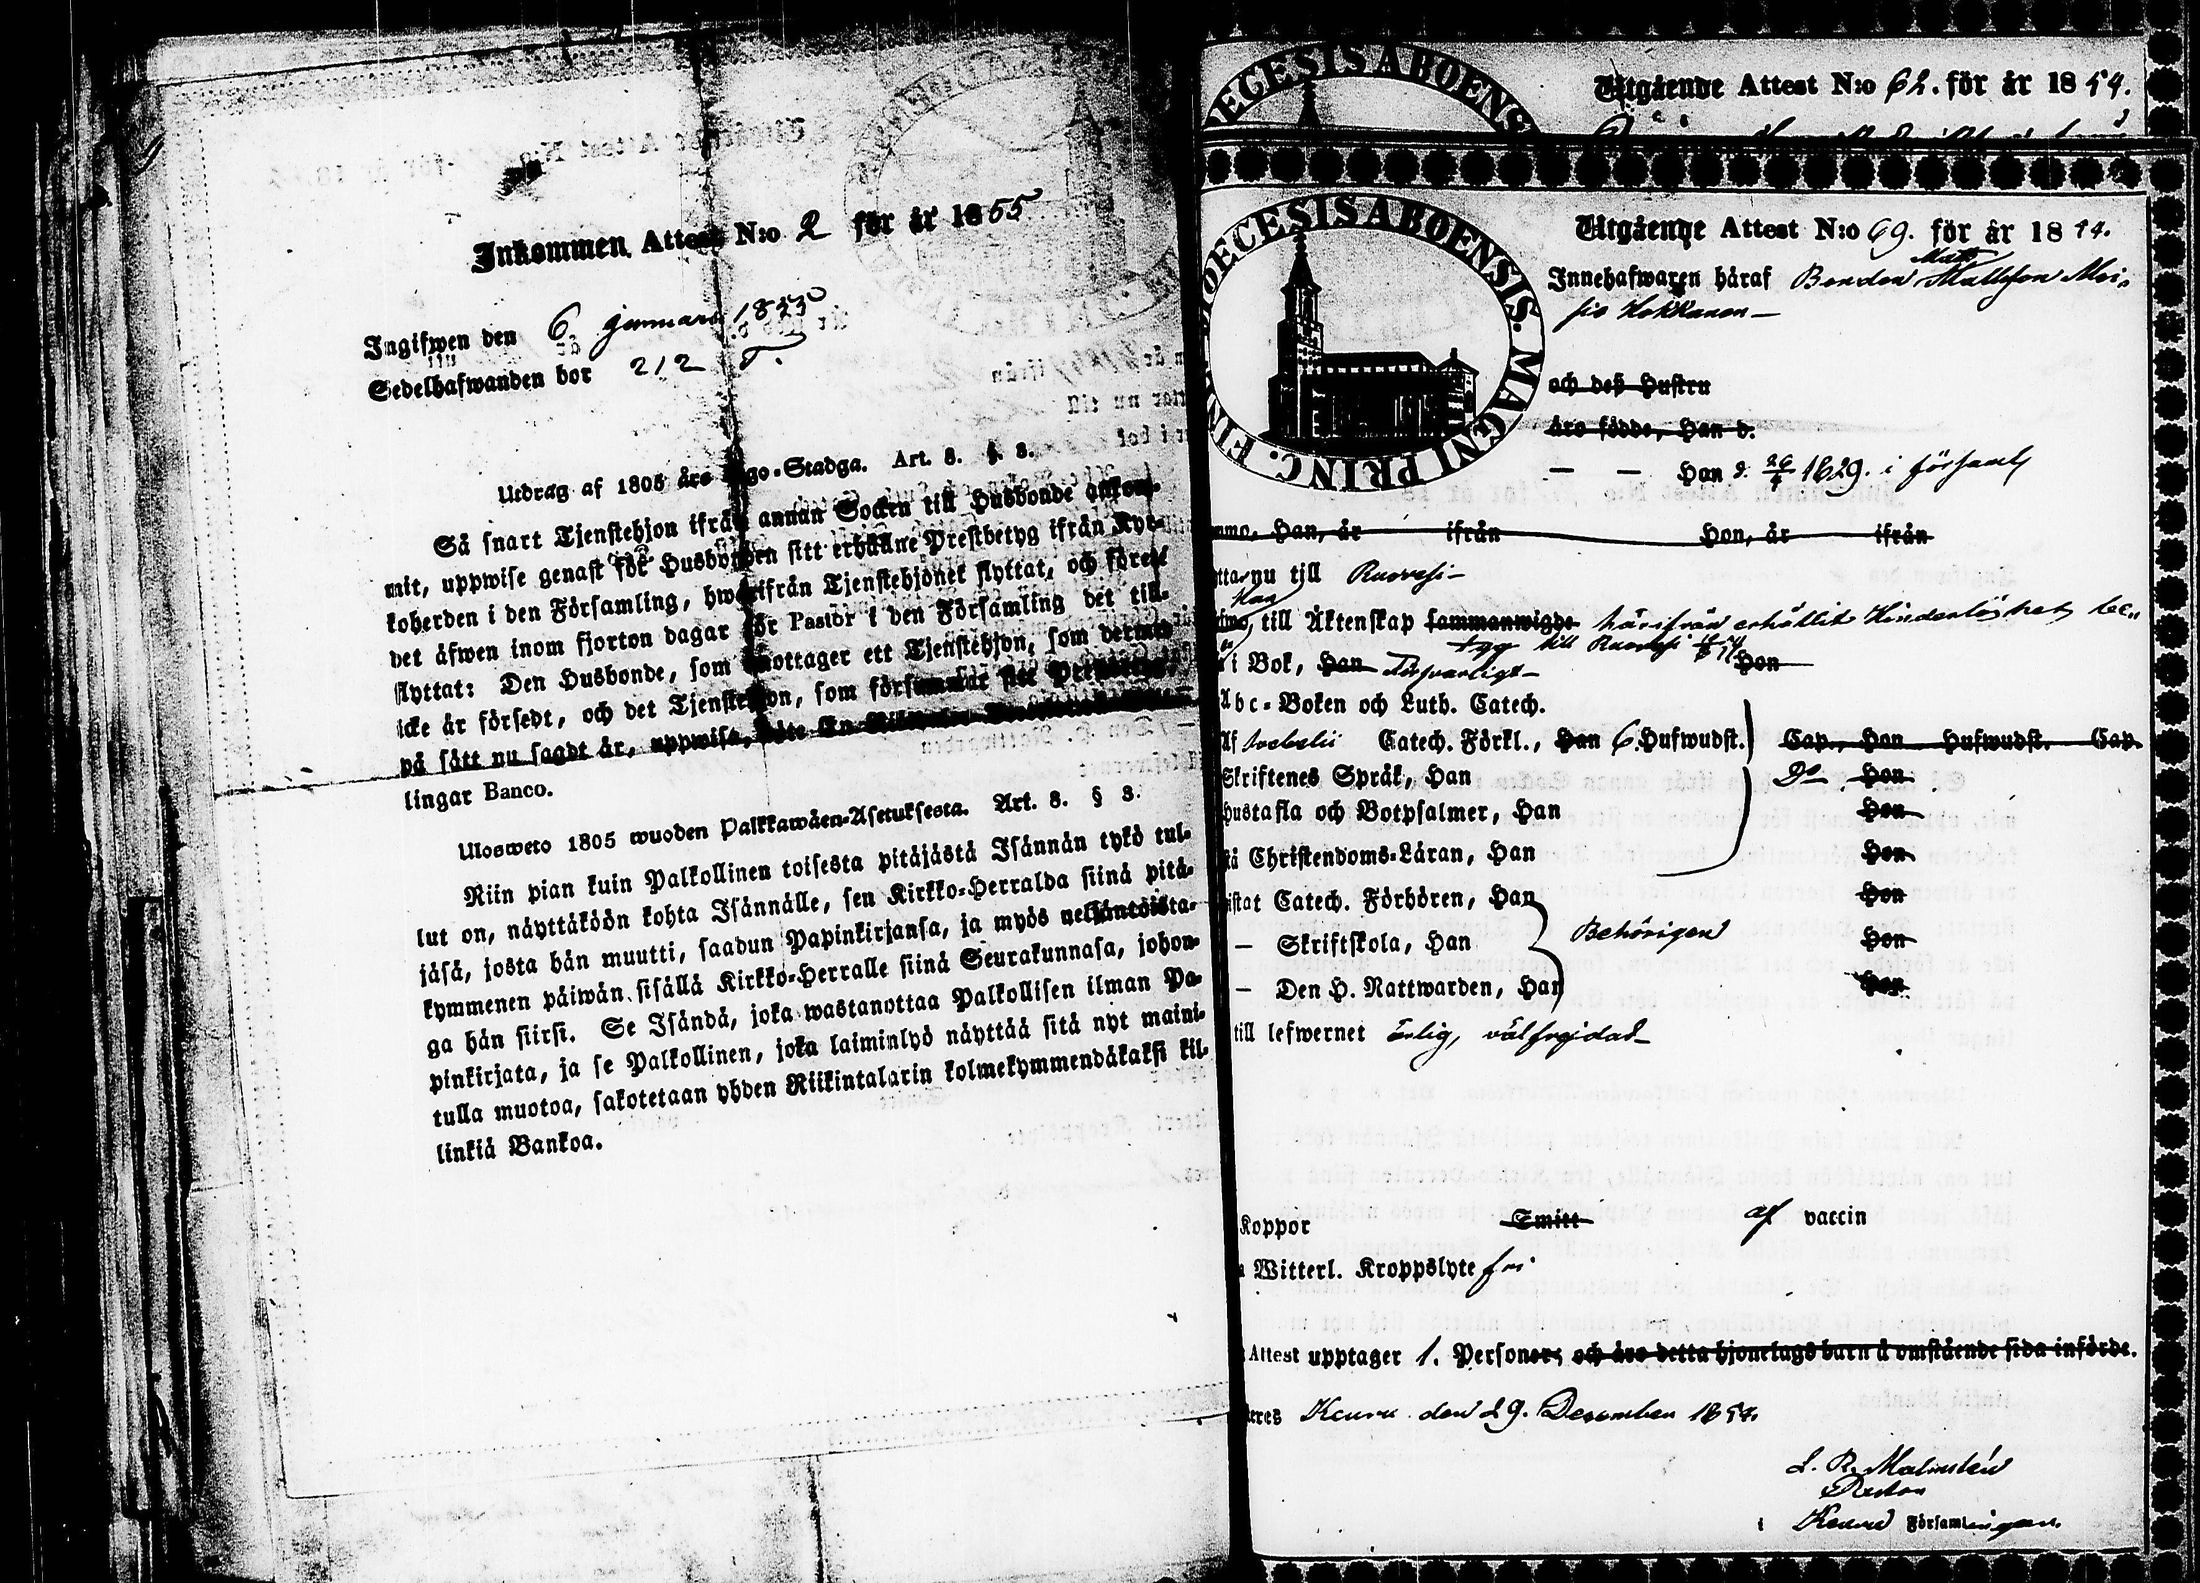 Inkommen Attest N:o 2 för år 1855
Ingifwen den 6 Januari 1855
Sedelhafwanden bor 212 T.
Utdrag af 1805 års Lego-Stadga. Art. 8. §. 3.
Så snart Tjenstehjon ifrån annan Socken till Husbonde ankom-
mit, uppwise genast för Husbonden sitt erhållne Prestbetyg ifrån Kyr-
koherden i den Församling, hwarifrån Tjenstehjonet flyttat, och förete
det äfwen inom fjorton dagar för Pastor i den Församling det till-
flyttat: Den Husbonde, som emottager ett Tjenstehjon, som dermed
icke är försedt, och det Tjenstehjon, som försummar sitt Prestbetyg
på sätt nu sagdt är, uppwisa, böte En Riksdaler
lingar Banco.
Ulosweto 1805 wuoden Palkkawäen-Asetuksesta. Art. 8. § 3.
Niin pian kuin Palkollinen toisesta pitäjästä Isännän tykö tul-
lut on, näyttäköön kohta Isännälle, sen Kirkko-Herralda siinä pitä-
jäsä, josta hän muutti, saadun Papinkirjansa, ja myös neljäntöista-
kymmenen päiwän sisällä Kirkko-Herralle siinä Seurakunnasa, johon-
ga hän siirsi. Se Isändä, joka wastanottaa Palkollisen ilman Pa-
pinkirjata, ja se Palkollinen, joka laiminlyö näyttää sitä nyt maini-
tulla muotoa, sakotetaan yhden Riikintalarin kolmekymmendäkaksi kil-
linkiä Bankoa.
DECESIS ABOENS
Utgående Attest N:o 62. för år 1854.
DIOECESIS ABOENSIS. MAGNI PRINC. FINL
Utgående Attest N:o 69. för år 1854.
Matts
Innehafwaren häraf Bonden Mattsson Moi-
sio Kokkanen —
och deß Hustru
äro födde, Han d.
— — Han d. 1829. i församl
mmo, Han, år ifrån Hon, år ifrån
ttar nu till Ruovesi —
Har
till Äktenskap sammanwigde härifrån erhållit Hinderlöshets be-
tyg till Ruovesi
i Bok, Han Försvarligt — Hon
Abc-Boken och Luth. Catech.
Af Svebelii Catech. Förkl., Han 6. Hufwudst. Cap., Hon Hufwudst. Cap.
Skriftenes Språk, Han Do Hon
Hustafla och Botpsalmer, Han Hon
tå Christendoms-Läran, Han Hon
istat Catech. Förhören, Han Hon
— Skriftskola, Han Behörigen Hon
— Den H. Nattwarden, Han Hon
till lefwernet ärlig, välfrejdad —
Koppor Smitt af vaccin
Witterl. Kroppslyte fri
Attest upptager 1. Personer, och äro detta hjonelags barn å omstående sida införde.
teres Keuru den 29. December 1854.
L. R. Malmstén
Pastor
i Keuru Församlingen.